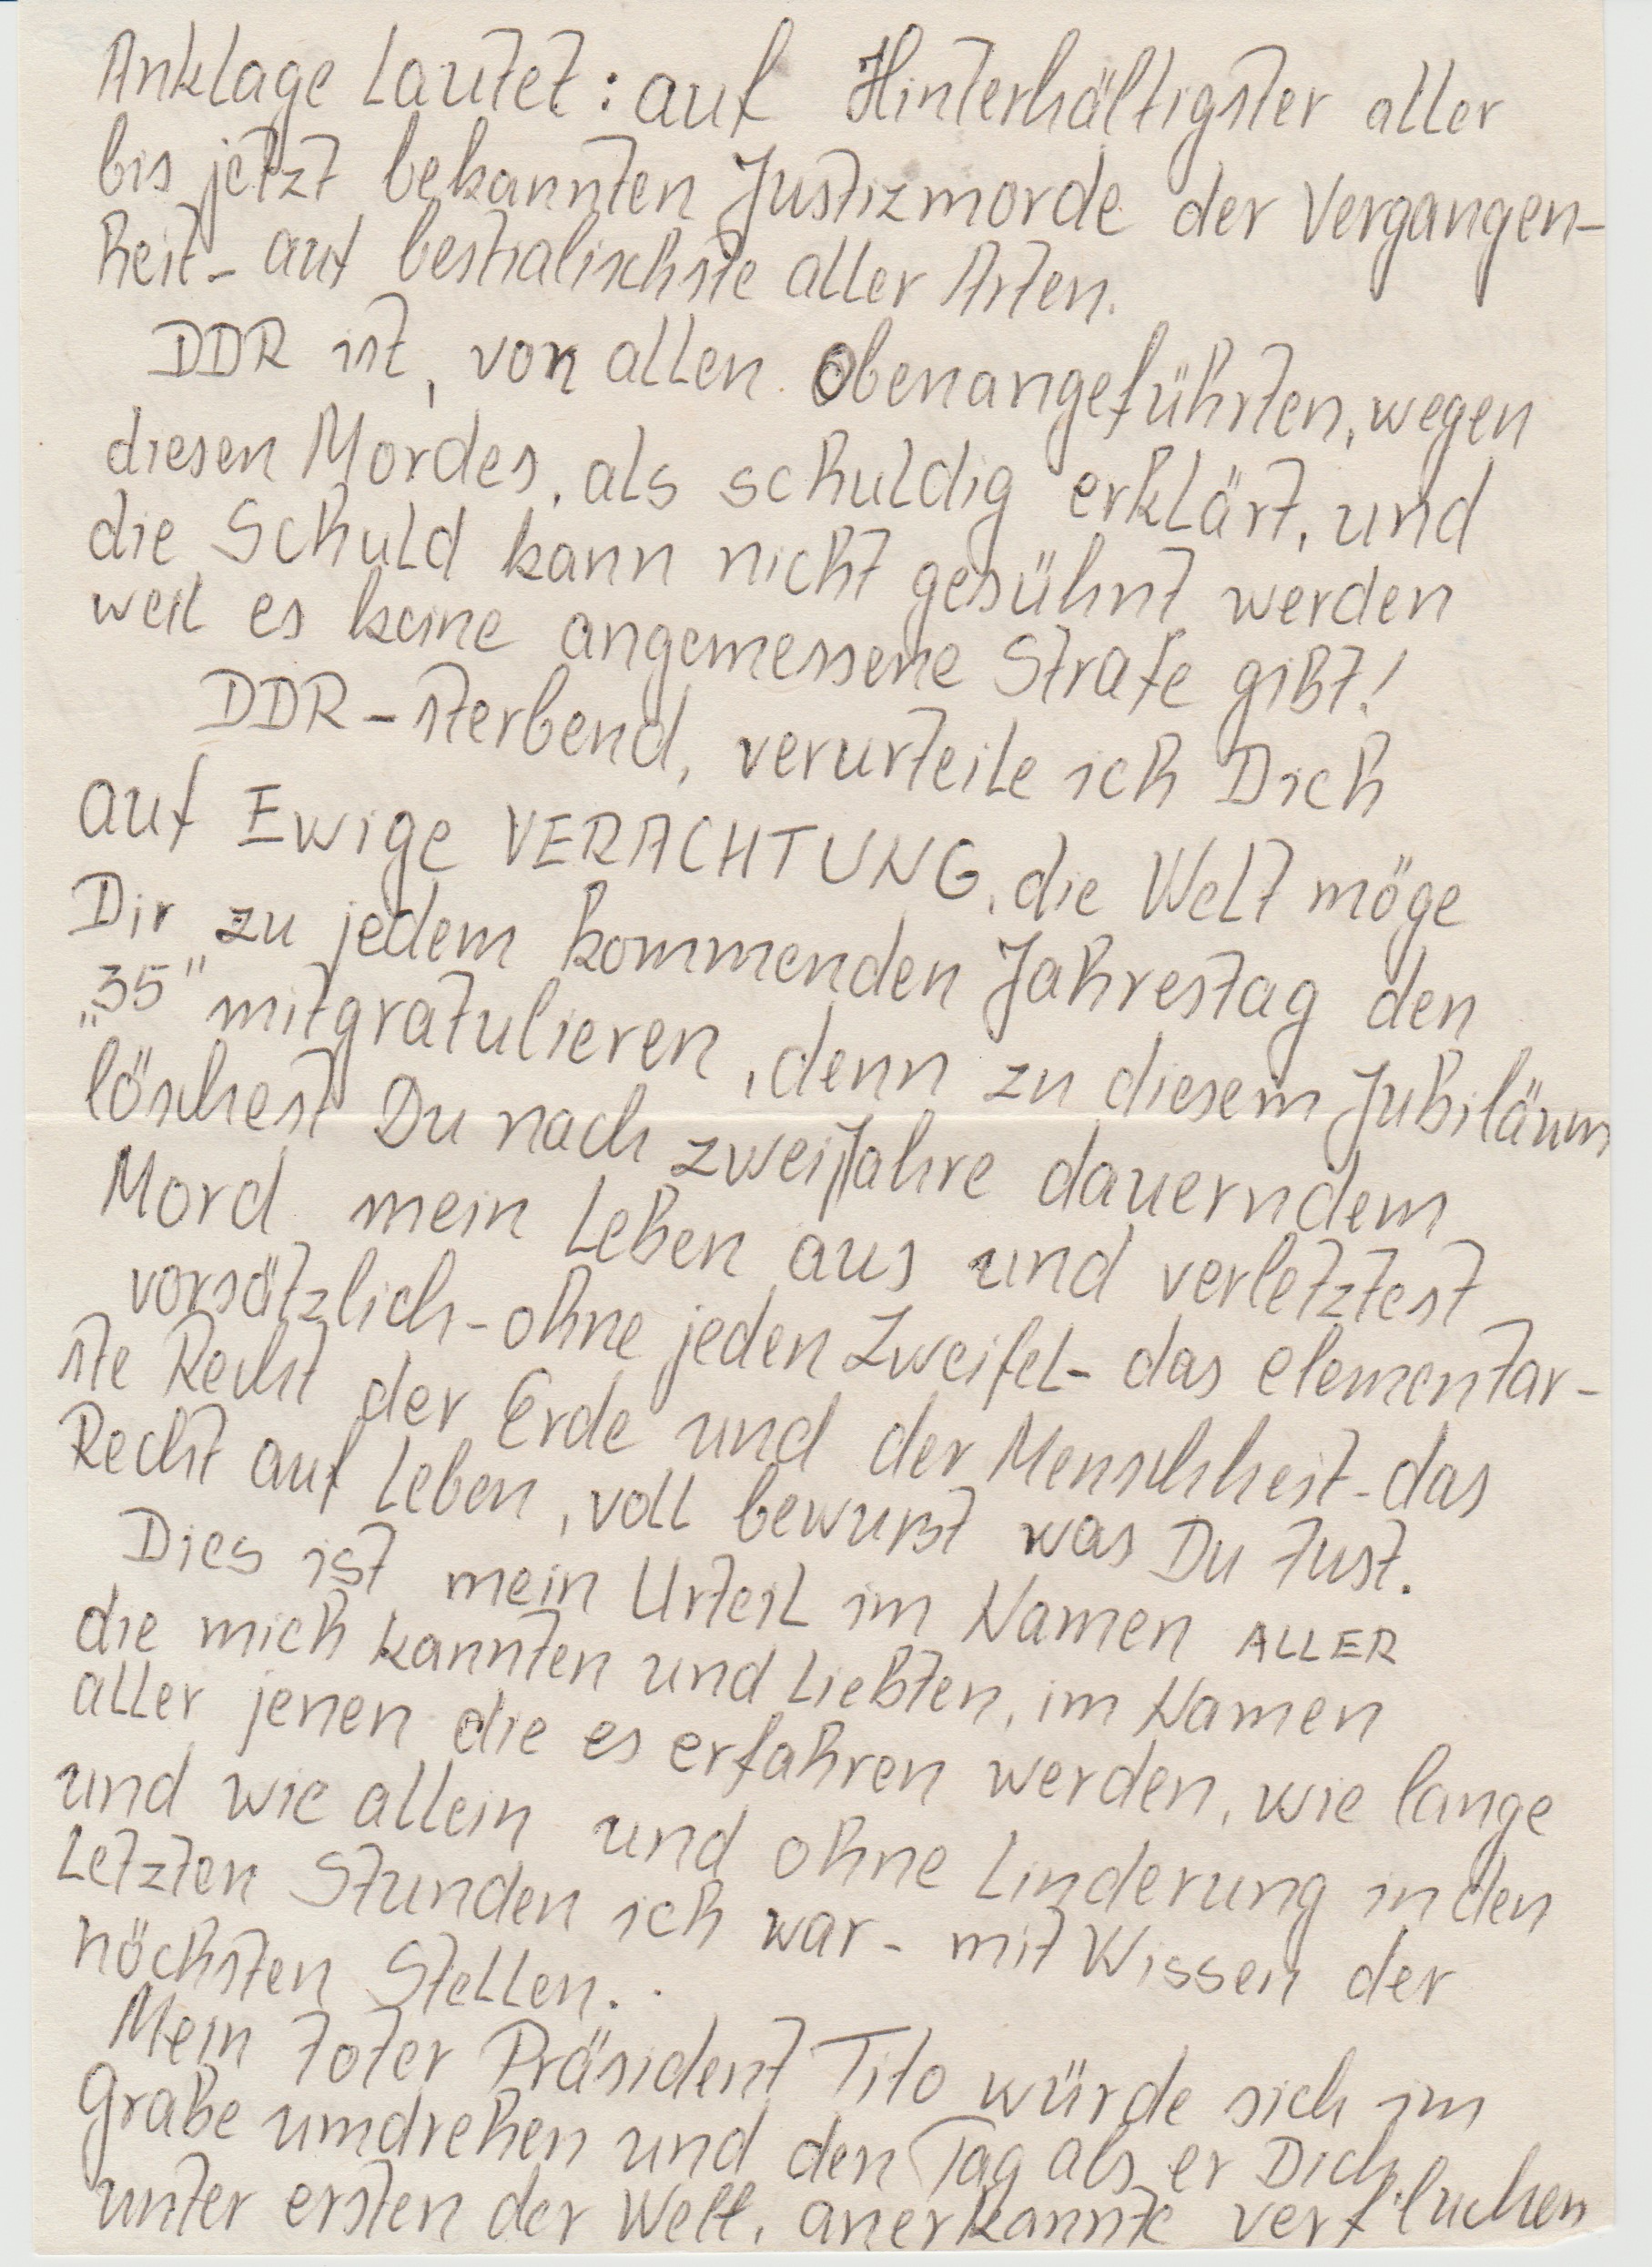 Anklage Lautet: auf Hinterhältigster aller
bis jetzt bekannten Justizmorde der Vergangen-
heit- auf bestialischste aller Arten.
DDR ist, von allen Obenangeführten, wegen
diesen Mordes, als schuldig erklärt, und
die Schuld kann nicht gesühnt werden
weil es keine angemessene Strafe gibt!
DDR-sterbend, verurteile ich Dich
auf Ewige VERACHTUNG, die Welt möge
Dir zu jedem kommenden Jahrestag den
„35" mitgratulieren, denn zu diesem Jubiläum
löschest Du nach zweiJahre dauerndem
Mord mein Leben aus und verletztest
vorsätzlich-ohne jeden Zweifel- das elementar-
ste Recht der Erde und der Menschheit-das
Recht auf Leben, voll bewußt was Du tust.
Dies ist mein Urteil im Namen ALLER
die mich kannten und Liebten, im Namen
aller jenen die es erfahren werden, wie lange
und wie allein und ohne Linderung in den
Letzten Stunden ich war- mit Wissen der
höchsten Stellen.
Mein toter Präsident Tito würde sich im
Grabe umdrehen und den Tag als er Dich
unter ersten der Welt, anerkannte verfluchen